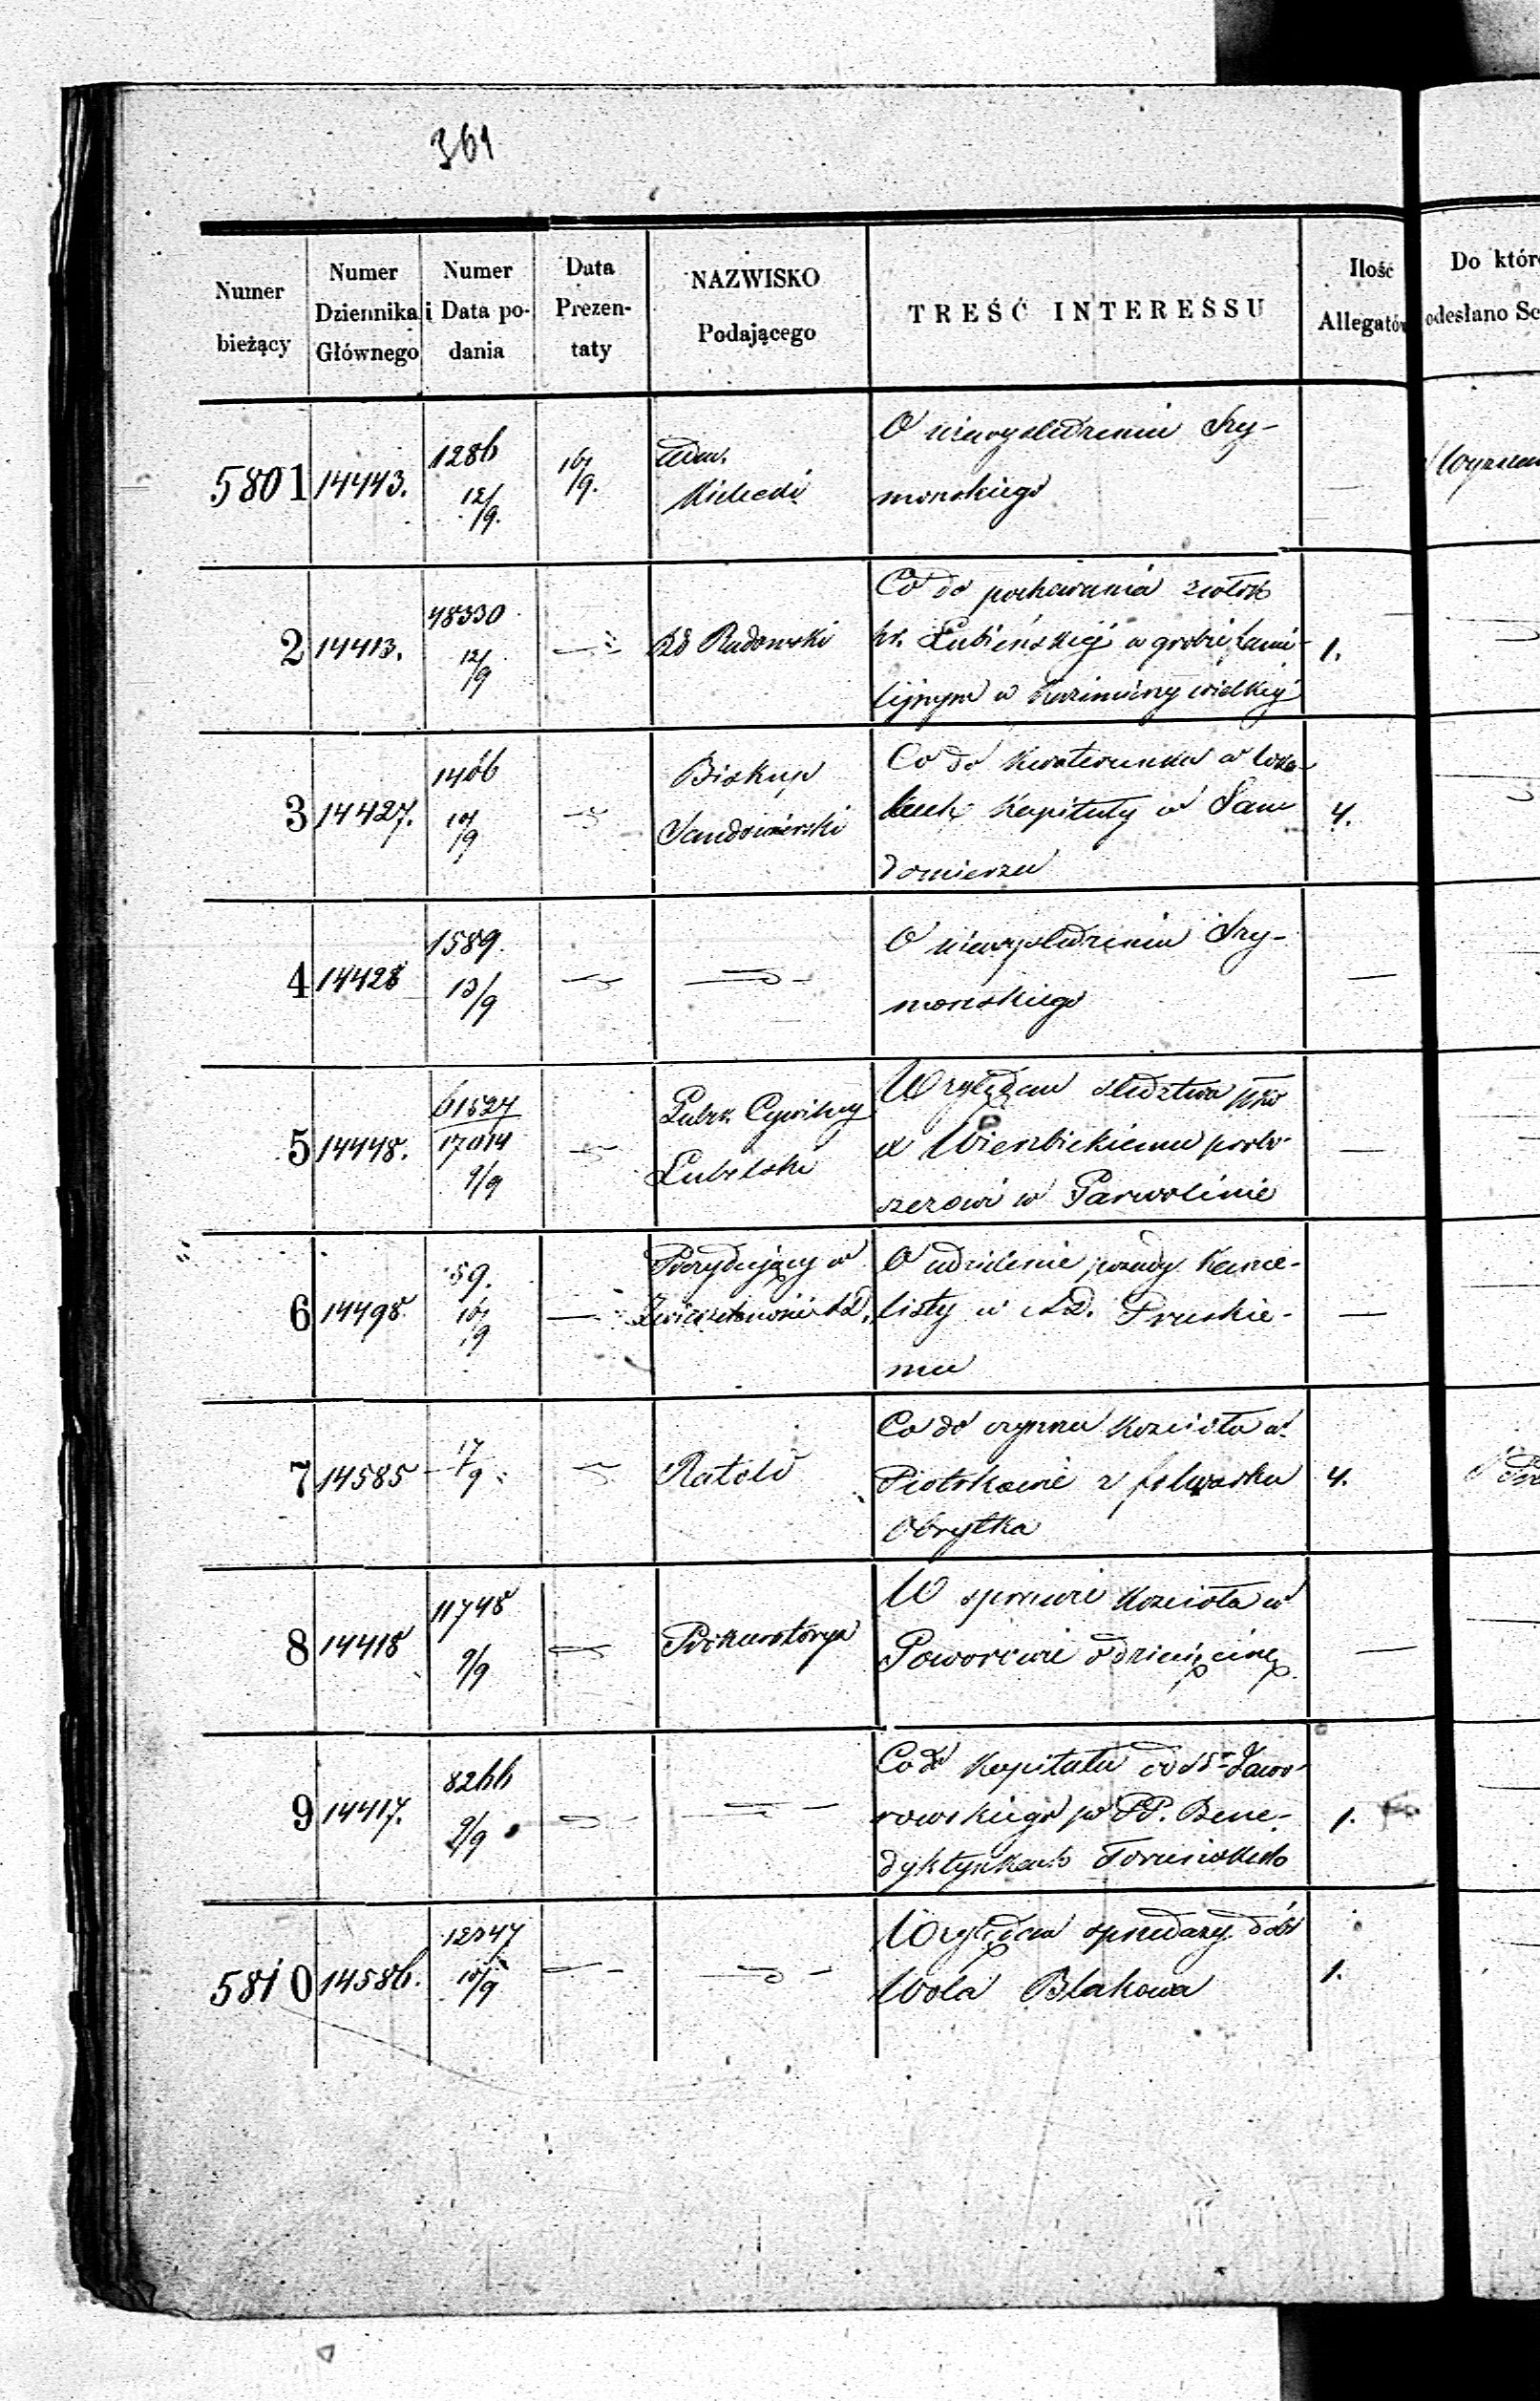 361
Numer bieżący | Numer Dziennika Głównego | Numer i Data podania | Data Prezentaty | NAZWISKO Podającego | TREŚĆ INTERESSU | Ilość Allegatów | Do któr odesłano Sc
5801 | 14443. | 1286 12/9. | 16/9. | Adm. Kielecki | O niewyśledzeniu Szy-
monskiego
2 | 14413. | 48330 12/9 | — | RG Radomski | Co do pochowania zwłok
hr. Łubieńskiej w grobie fami-
lijnym w Kazimierzy wielkiej | 1.
3 | 14427. | 1406 10/9 | — | Biskup
Sandomierski | Co do kwaterunku w loka-
lach Kapituły w San
domierzu | 4.
4 | 14428 | 1589. 13/9 | — | — | O niewyśledzeniu Szy-
monskiego | —
5 | 14448. | 61527/17014 9/9 | — | Gubr. Cywilny
Lubelski | Względem śledztwa prko
X Wierzbickiemu probo-
szczowi w Garwolinie | —
6 | 14498. | 59. 16/9 | — | Prezydujący w
AD. | O udzielenie posady Kance-
listy w AD. Pruskie-
mu | —
7 | 14585 | 17/9. | — | Ratold | Co do czynszu Kościoła w
Piotrkowie z folwarku
Obrytka | 4.
8 | 14418 | 11748 9/9 | — | Prokuratorya | W sprawie Kościoła w
Goworowie o dziesięcinę | —
9 | 14417. | 8266 9/9 | — | — | Co do Kapitału od Jawo-
rowskiego po PP. Bene-
dyktynkach Toruńskich | 1.
5810 | 14586. | 12347 10/9 | — | — | Względem sprzedaży dóbr
Wola Blakowa | 1.